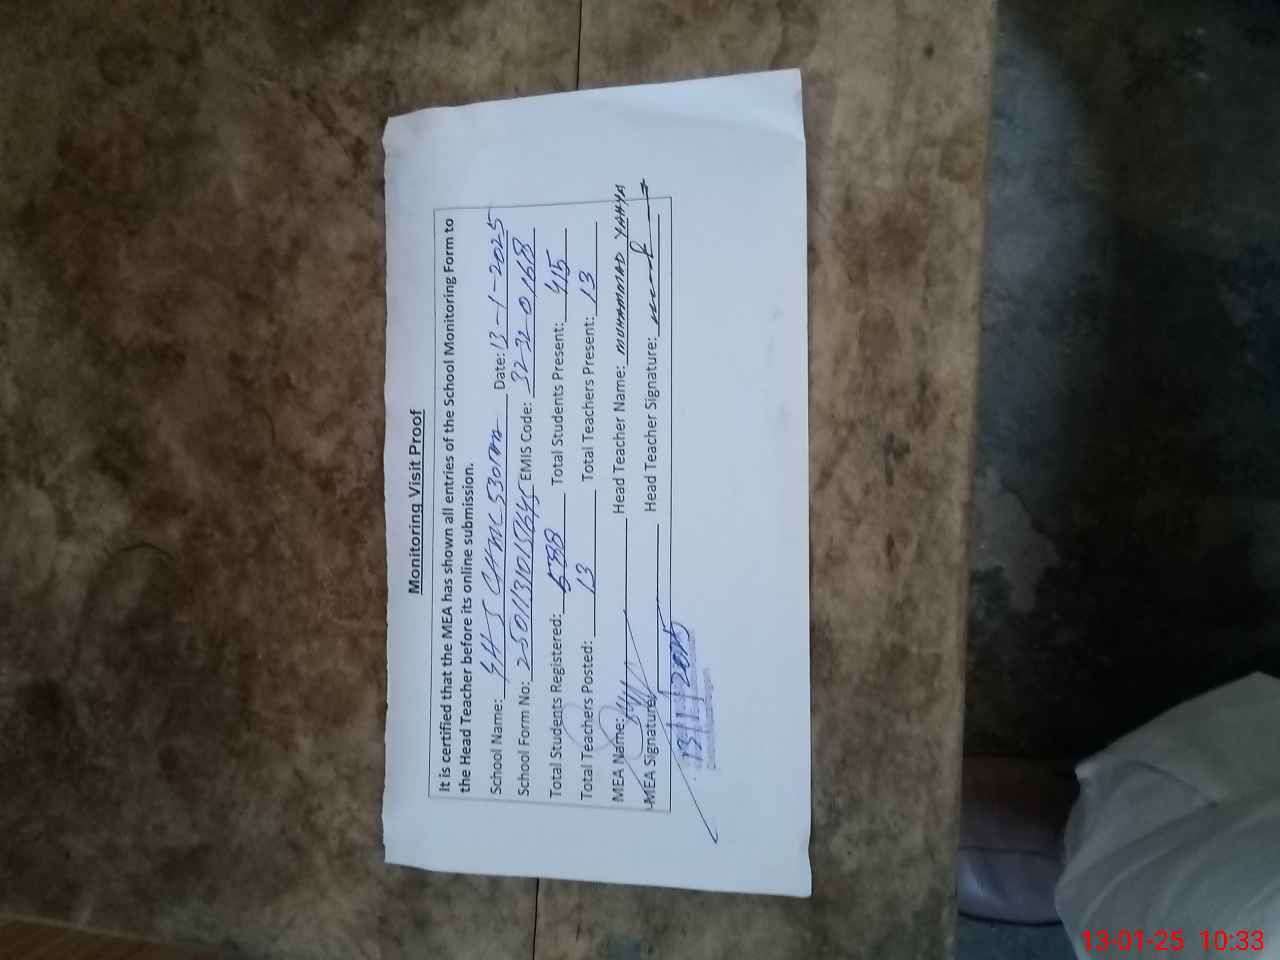 Monitoring Visit Proof
It is certified that the MEA has shown all entries of the School Monitoring Form to
the Head Teacher before its online submission.
School Name: GHS Date: 13-1-2025
School Form No: EMIS Code: 32-320168
Total Students Registered: 588 Total Students Present: 415
Total Teachers Posted: 13 Total Teachers Present: 13
MEA Name: Head Teacher Name: MUHAMMAD YAHYA
MEA Signature: Head Teacher Signature:
13/1/2025
13-01-25 10:33